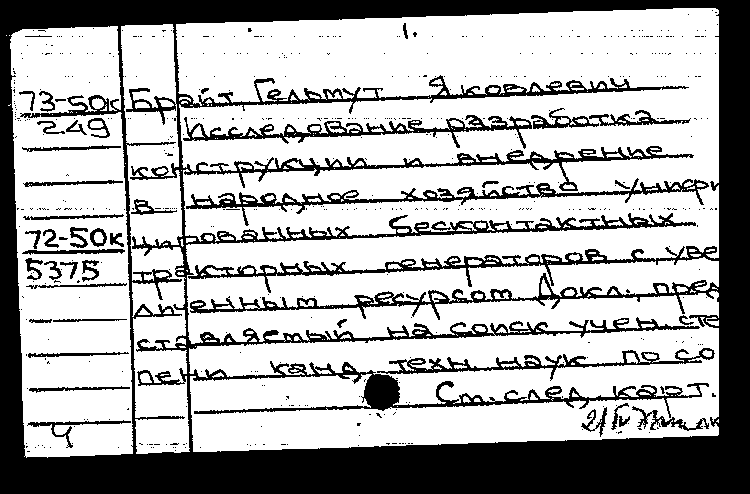 1.
73-50к Брайт, Гельмут Яковлевич
249 Исследование, разработка
конструкции и внедрение
в народное хозяйство унифи
72-50к цированных бесконтактных
5375 тракторных генераторов с уве
личенным ресурсом Докл., пред
ставляемый на соиск. учен. сте
пени канд. техн. наук по со
См. след. карт.
4 21/IV